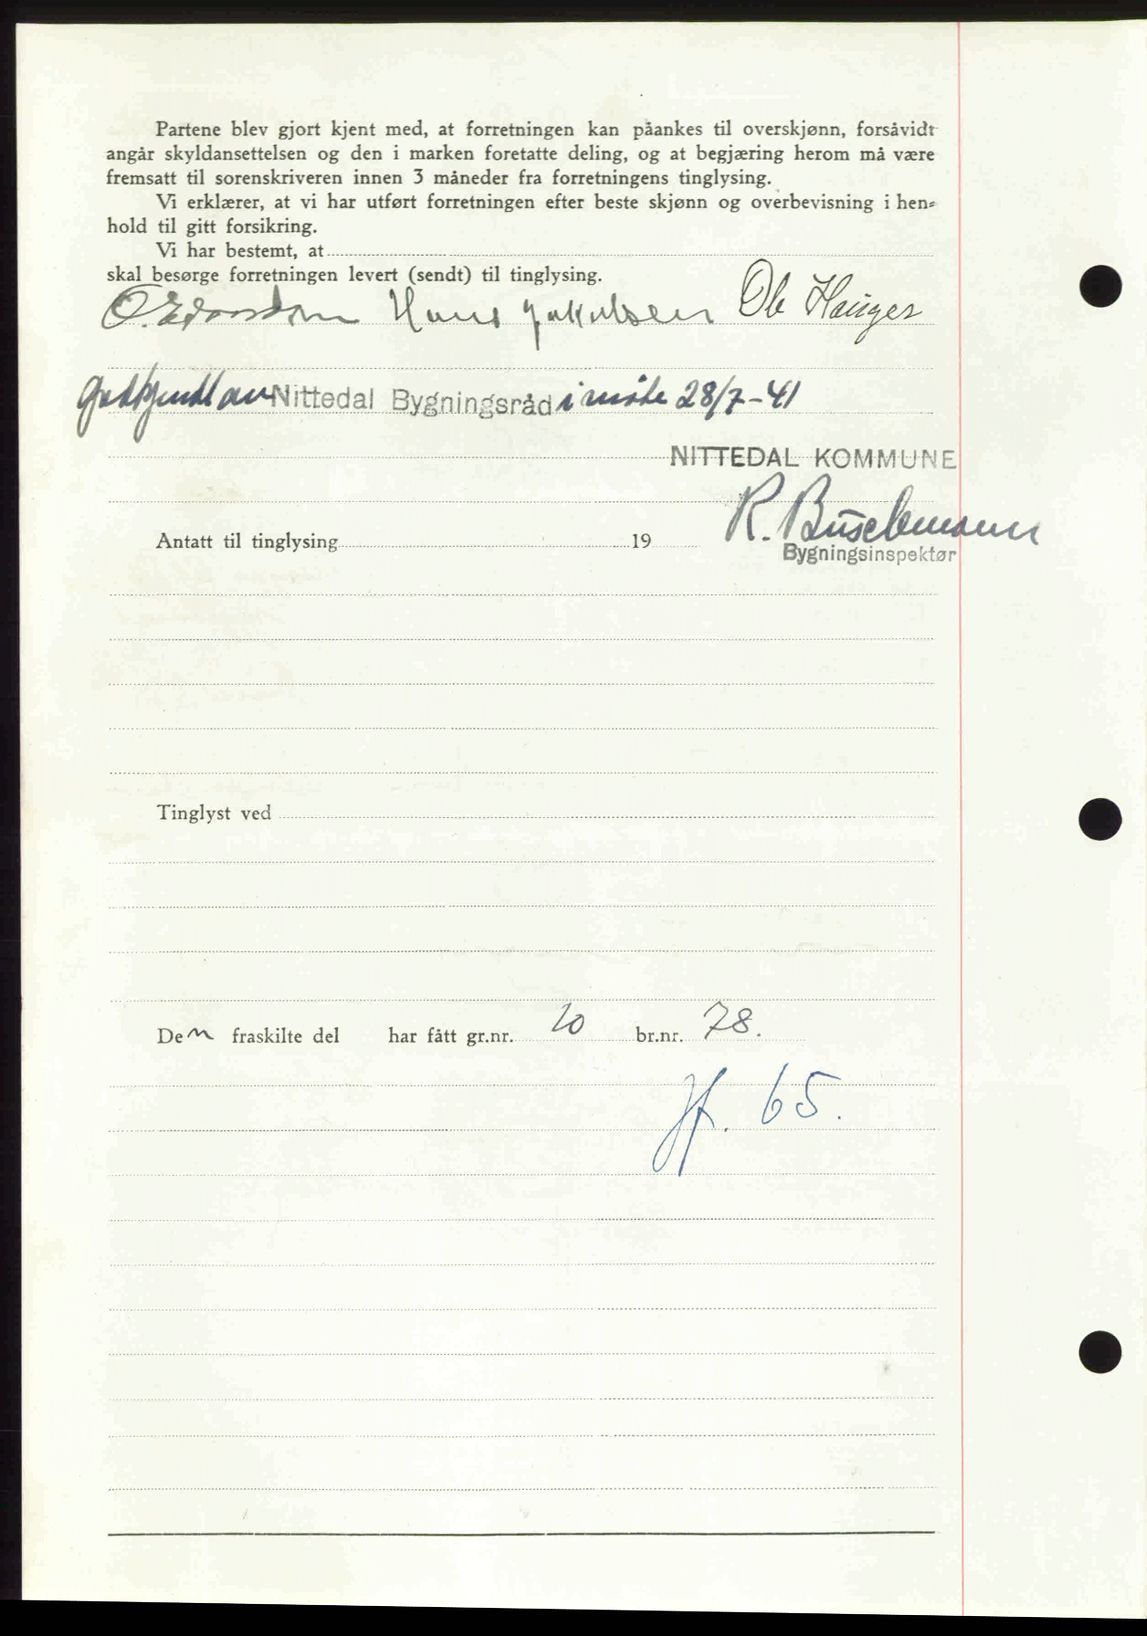 Partene blev gjort kjent med, at forretningen kan påankes til overskjønn, forsåvidt
angår skyldansettelsen og den i marken foretatte deling, og at begjæring herom må være
fremsatt til sorenskriveren innen 3 måneder fra forretningens tinglysing.
Vi erklærer, at vi har utført forretningen efter beste skjønn og overbevisning i hen-
hold til gitt forsikring.
Vi har bestemt, at
skal besørge forretningen levert (sendt) til tinglysing.
Hans Jakobsen Ole Hauger
Godkjendt av Nittedal Bygningsråd i møte 28/7-41
NITTEDAL KOMMUNE
R.
Antatt til tinglysing 19
Bygningsinspektør
Tinglyst ved
Den fraskilte del har fått gr.nr. 20 br.nr. 78.
Jf. 65.